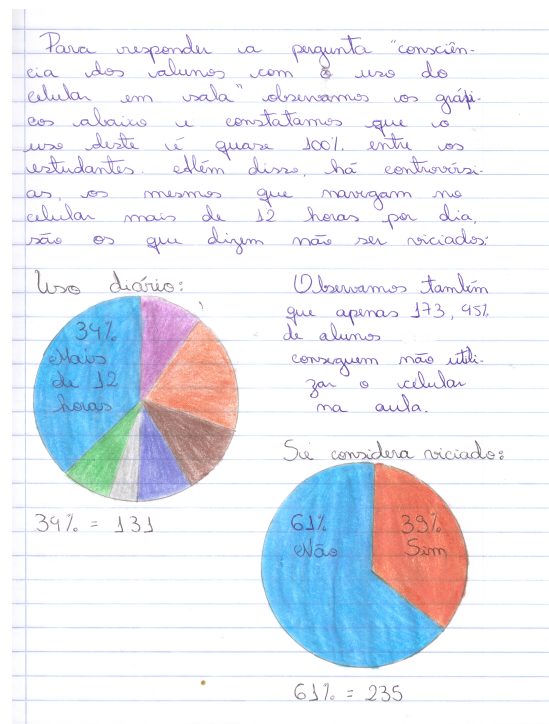 Para responder a pergunta "consciên-
cia dos alunos com o uso do
celular em sala" observamos os gráfi-
cos abaixo e constatamos que o
uso deste é quase 100% entre os
estudantes. Além disso, há controvérsi-
as, os mesmos que navegam no
celular mais de 12 horas por dia,
são os que dizem não ser viciados:
Uso diário:
34%
Mais
de 12
horas
34% = 131
Observamos também
que apenas 173, 45%
de alunos
conseguem não utili-
zar o celular
na aula.
Se considera viciado:
61%
Não
39%
Sim
61% = 235